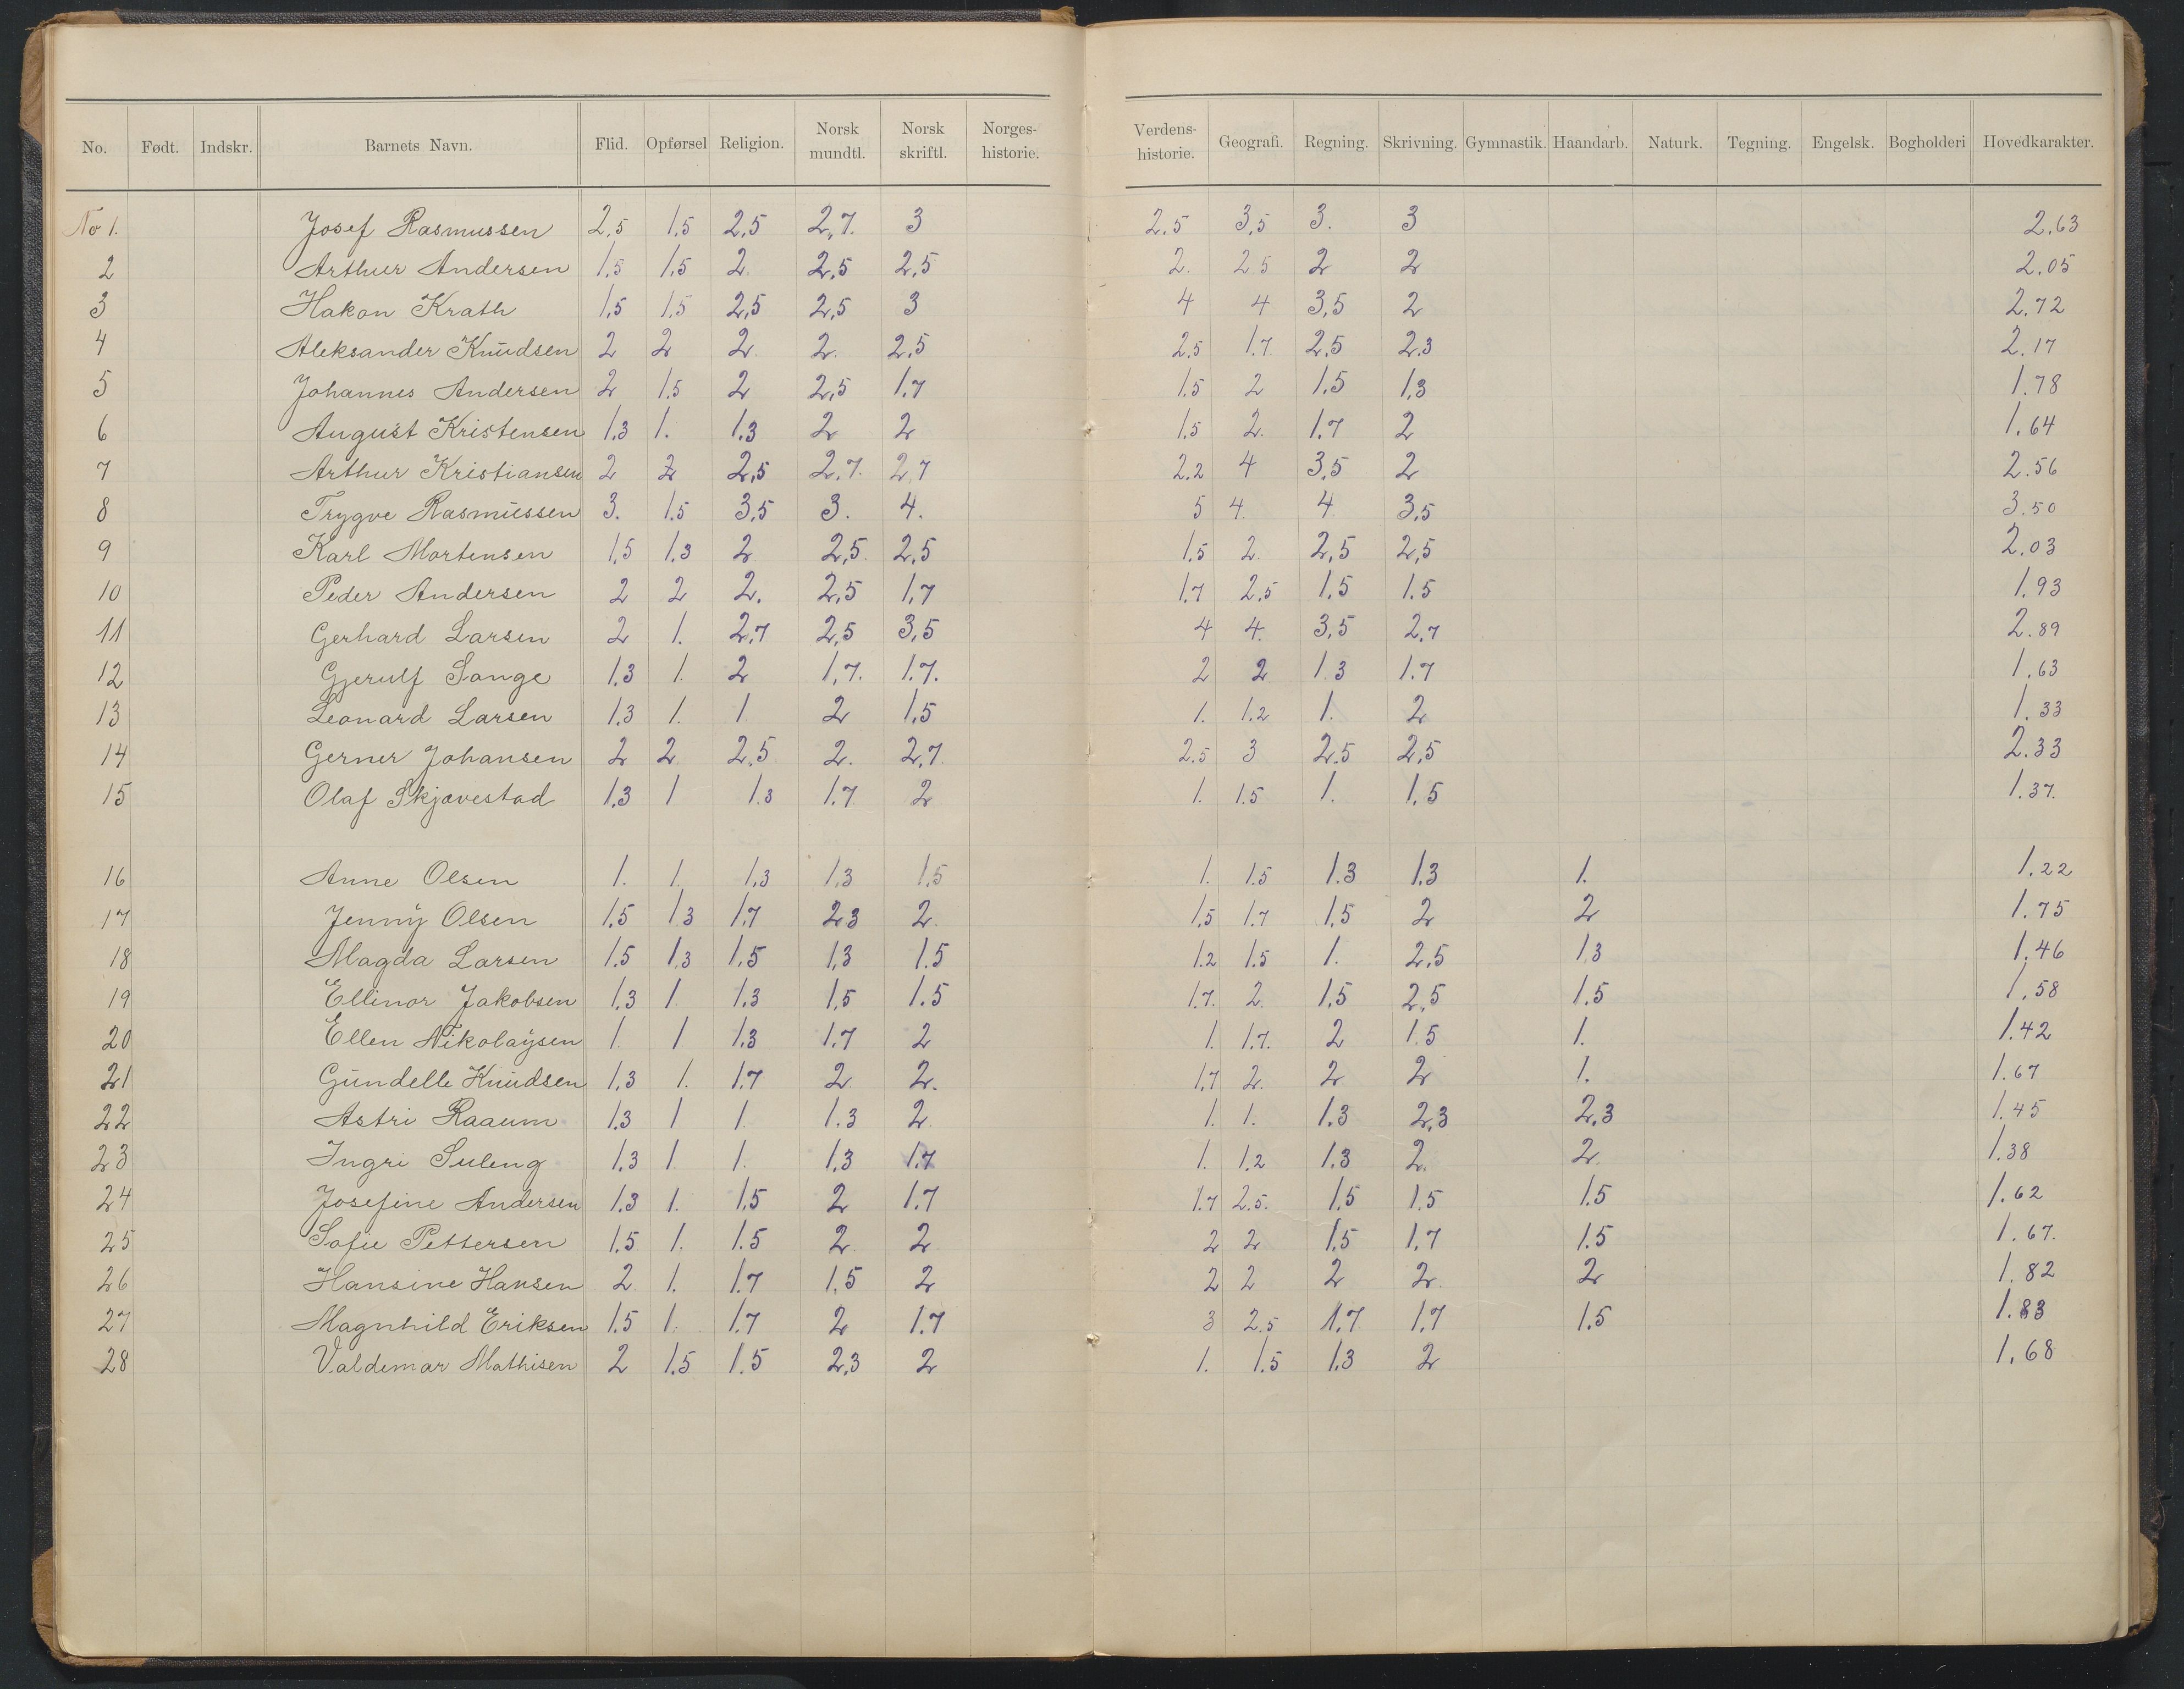 No. Født. Indskr. Barnets Navn. Flid. Opførsel Religion. Norsk mundtl. Norsk skriftl. Norges-historie. Verdens-historie. Geografi. Regning. Skrivning. Gymnastik. Haandarb. Naturk. Tegning. Engelsk. Bogholderi Hovedkarakter.
No 1. Josef Rasmussen 2,5 1.5 2,5 2,7. 3 2.5 3,5 3. 3 2.63
2 Arthur Andersen 1,5 1,5 2. 2,5 2,5 2. 2.5 2 2 2.05
3 Hakon Krath 1,5 1,5 2,5 2,5 3 4 4 3,5 2 2.72
4 Aleksander Knudsen 2 2 2 2. 2,5 2.5 1.7. 2,5 2,3 2.17
5 Johannes Andersen 2 1.5 2 2,5 1.7 1.5 2 1.5 1,3 1.78
6 August Kristensen 1.3 1. 1.3 2 2 1.5 2. 1.7 2 1.64
7 Arthur Kristiansen 2 2 2,5 2.7. 2,7 2.2 4 3.5 2 2.56
8 Trygve Rasmussen 3. 1.5 3,5 3. 4. 5 4. 4 3,5 3.50
9 Karl Mortensen 1,5 1.3 2 2,5. 2,5 1.5 2. 2,5 2,5 2.03
10 Peder Andersen 2 2 2. 2,5 1,7 1.7 2.5 1.5 1.5 1.93
11 Gerhard Larsen 2 1. 2,7 2,5 3,5 4 4. 3,5 2,7 2.89
12 Gjerulf Sange 1.3 1. 2 1,7. 1.7. 2 2 1.3 1.7 1.63
13 Leonard Larsen 1.3 1. 1 2 1,5 1. 1.2 1. 2 1.33
14 Gerner Johansen 2 2 2,5 2. 2,7. 2.5 3 2.5 2,5 2.33
15 Olaf Skjævestad 1.3 1 1.3 1.7 2 1. 1.5 1. 1.5 1.37.
16 Anne Olsen 1. 1. 1,3 1,3 1,5 1. 1.5 1.3 1.3 1. 1.22
17 Jenny Olsen 1.5 1.3 1.7 2.3 2. 1.5 1.7 1,5 2 2 1.75
18 Magda Larsen 1.5 1.3 1.5 1,3 1.5 1.2 1.5 1. 2,5 1.3 1.46
19 Ellinor Jakobsen 1.3 1 1,3 1,5 1.5 1.7. 2. 1,5 2,5 1.5 1.58
20 Ellen Nikolaysen 1. 1 1.3 1.7 2 1. 1.7. 2 1.5 1. 1.42
21 Gundelle Knudsen 1.3 1. 1.7 2 2. 1.7 2. 2 2 1. 1.67
22 Astri Raaum 1.3 1 1 1.3 2 1. 1. 1.3 2,3 2,3 1.45
23 Ingri Suleng 1.3 1 1. 1,3 1.7 1. 1.2 1.3 2. 2. 1.38
24 Josefine Andersen 1.3 1. 1.5 2 1.7 1.7 2.5. 1.5 1.5 1.5 1.62
25 Sofie Pettersen 1.5 1. 1.5 2 2 2 2 1.5 1.7 1.5 1.67.
26 Hansine Hansen 2 1. 1.7 1.5 2 2 2 2 2. 2 1.82
27 Magnhild Eriksen 1.5 1. 1.7 2 1.7 3 2.5 1.7 1.7 1.5 1.83
28 Valdemar Mathisen 2 1.5 1.5 2,3 2 1. 1.5 1.3 2 1.68